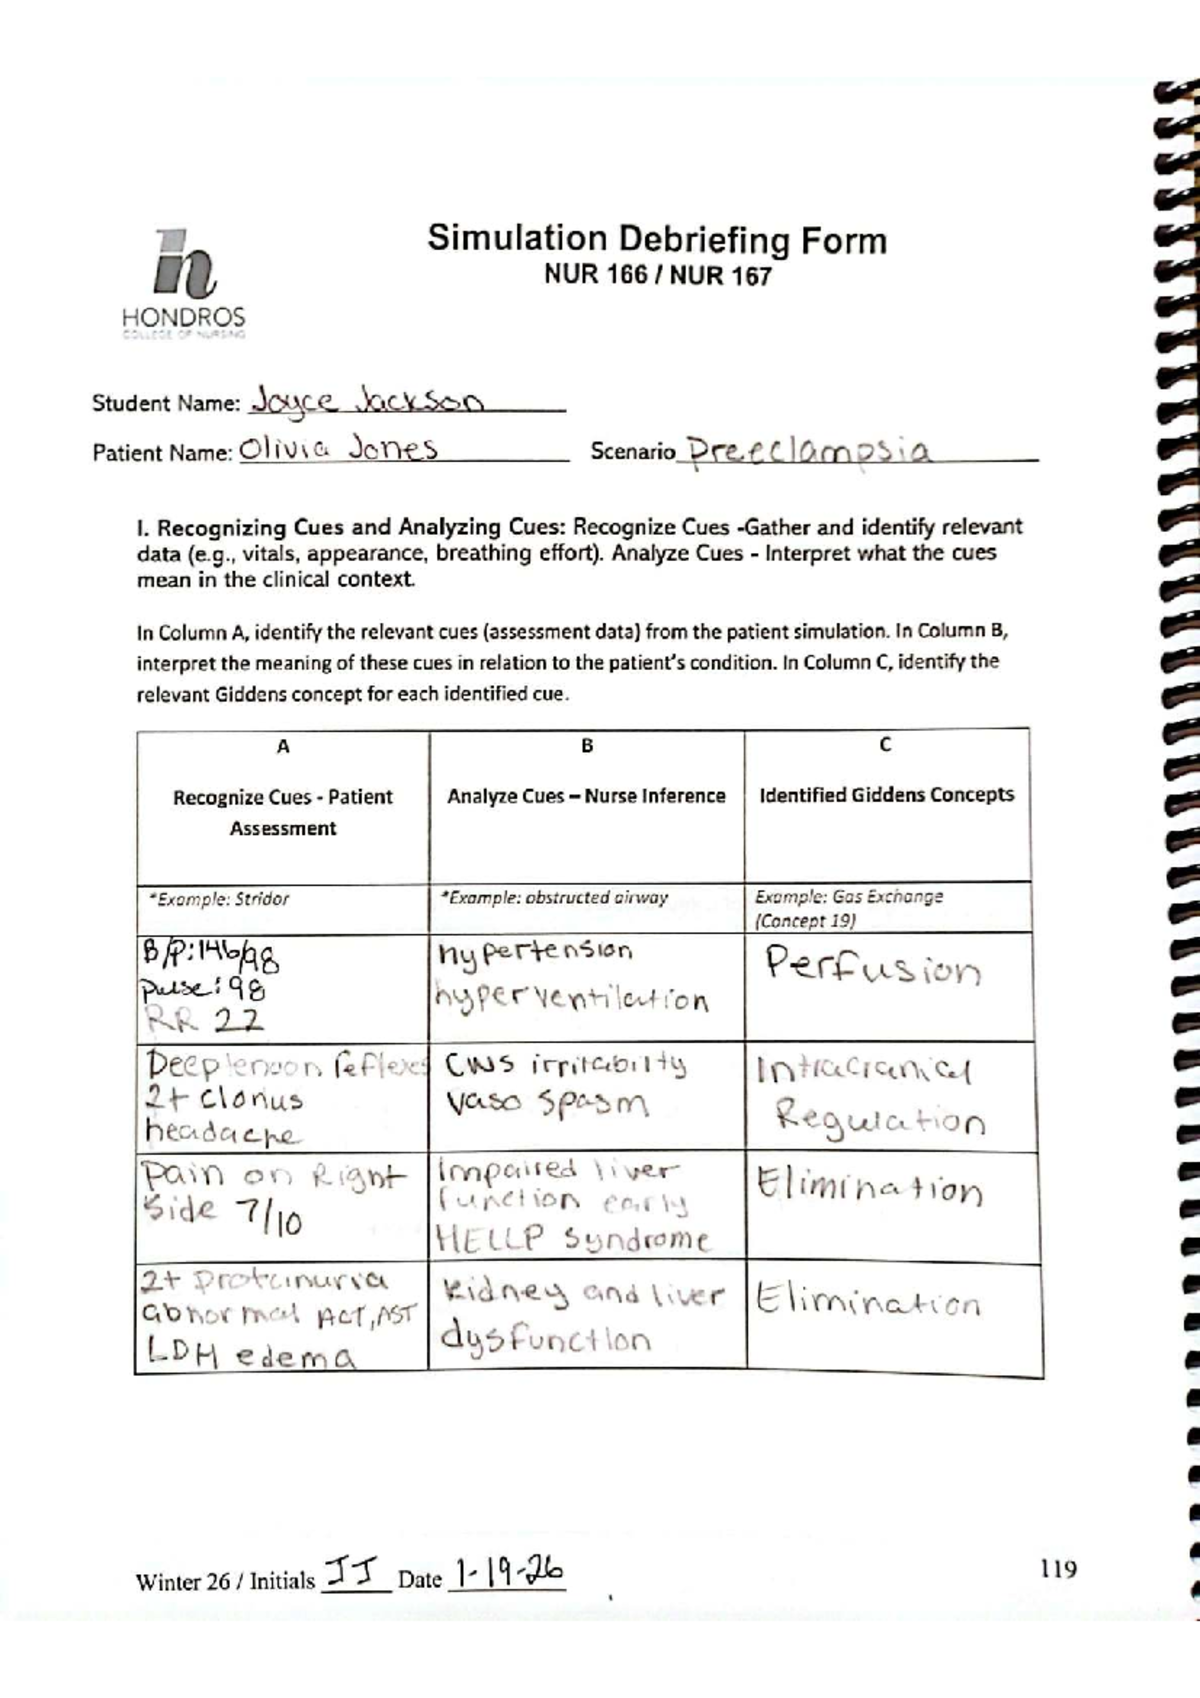 Simulation Debriefing Form
NUR 166 / NUR 167
h
HONDROS
COLLEGE OF NURSING
Student Name: Joyce Jackson
Patient Name: Olivia Jones Scenario Preeclampsia
I. Recognizing Cues and Analyzing Cues: Recognize Cues -Gather and identify relevant
data (e.g., vitals, appearance, breathing effort). Analyze Cues - Interpret what the cues
mean in the clinical context.
In Column A, identify the relevant cues (assessment data) from the patient simulation. In Column B,
interpret the meaning of these cues in relation to the patient's condition. In Column C, identify the
relevant Giddens concept for each identified cue.
A
Recognize Cues - Patient
Assessment
B
Analyze Cues – Nurse Inference
C
Identified Giddens Concepts
*Example: Stridor
*Example: obstructed airway
Example: Gas Exchange
(Concept 19)
B/P: 146/98
Pulse: 98
RR 22
hypertension
hyperventilation
Perfusion
Deep tendon reflexes
2+ clonus
headache
CNS irritability
vaso spasm
Intracranial
Regulation
Pain on Right
Side 7/10
Impaired liver
function early
HELLP Syndrome
Elimination
2+ proteinuria
abnormal ACT, AST
LDH edema
kidney and liver
dysfunction
Elimination
Winter 26 / Initials JJ Date 1-19-26
119